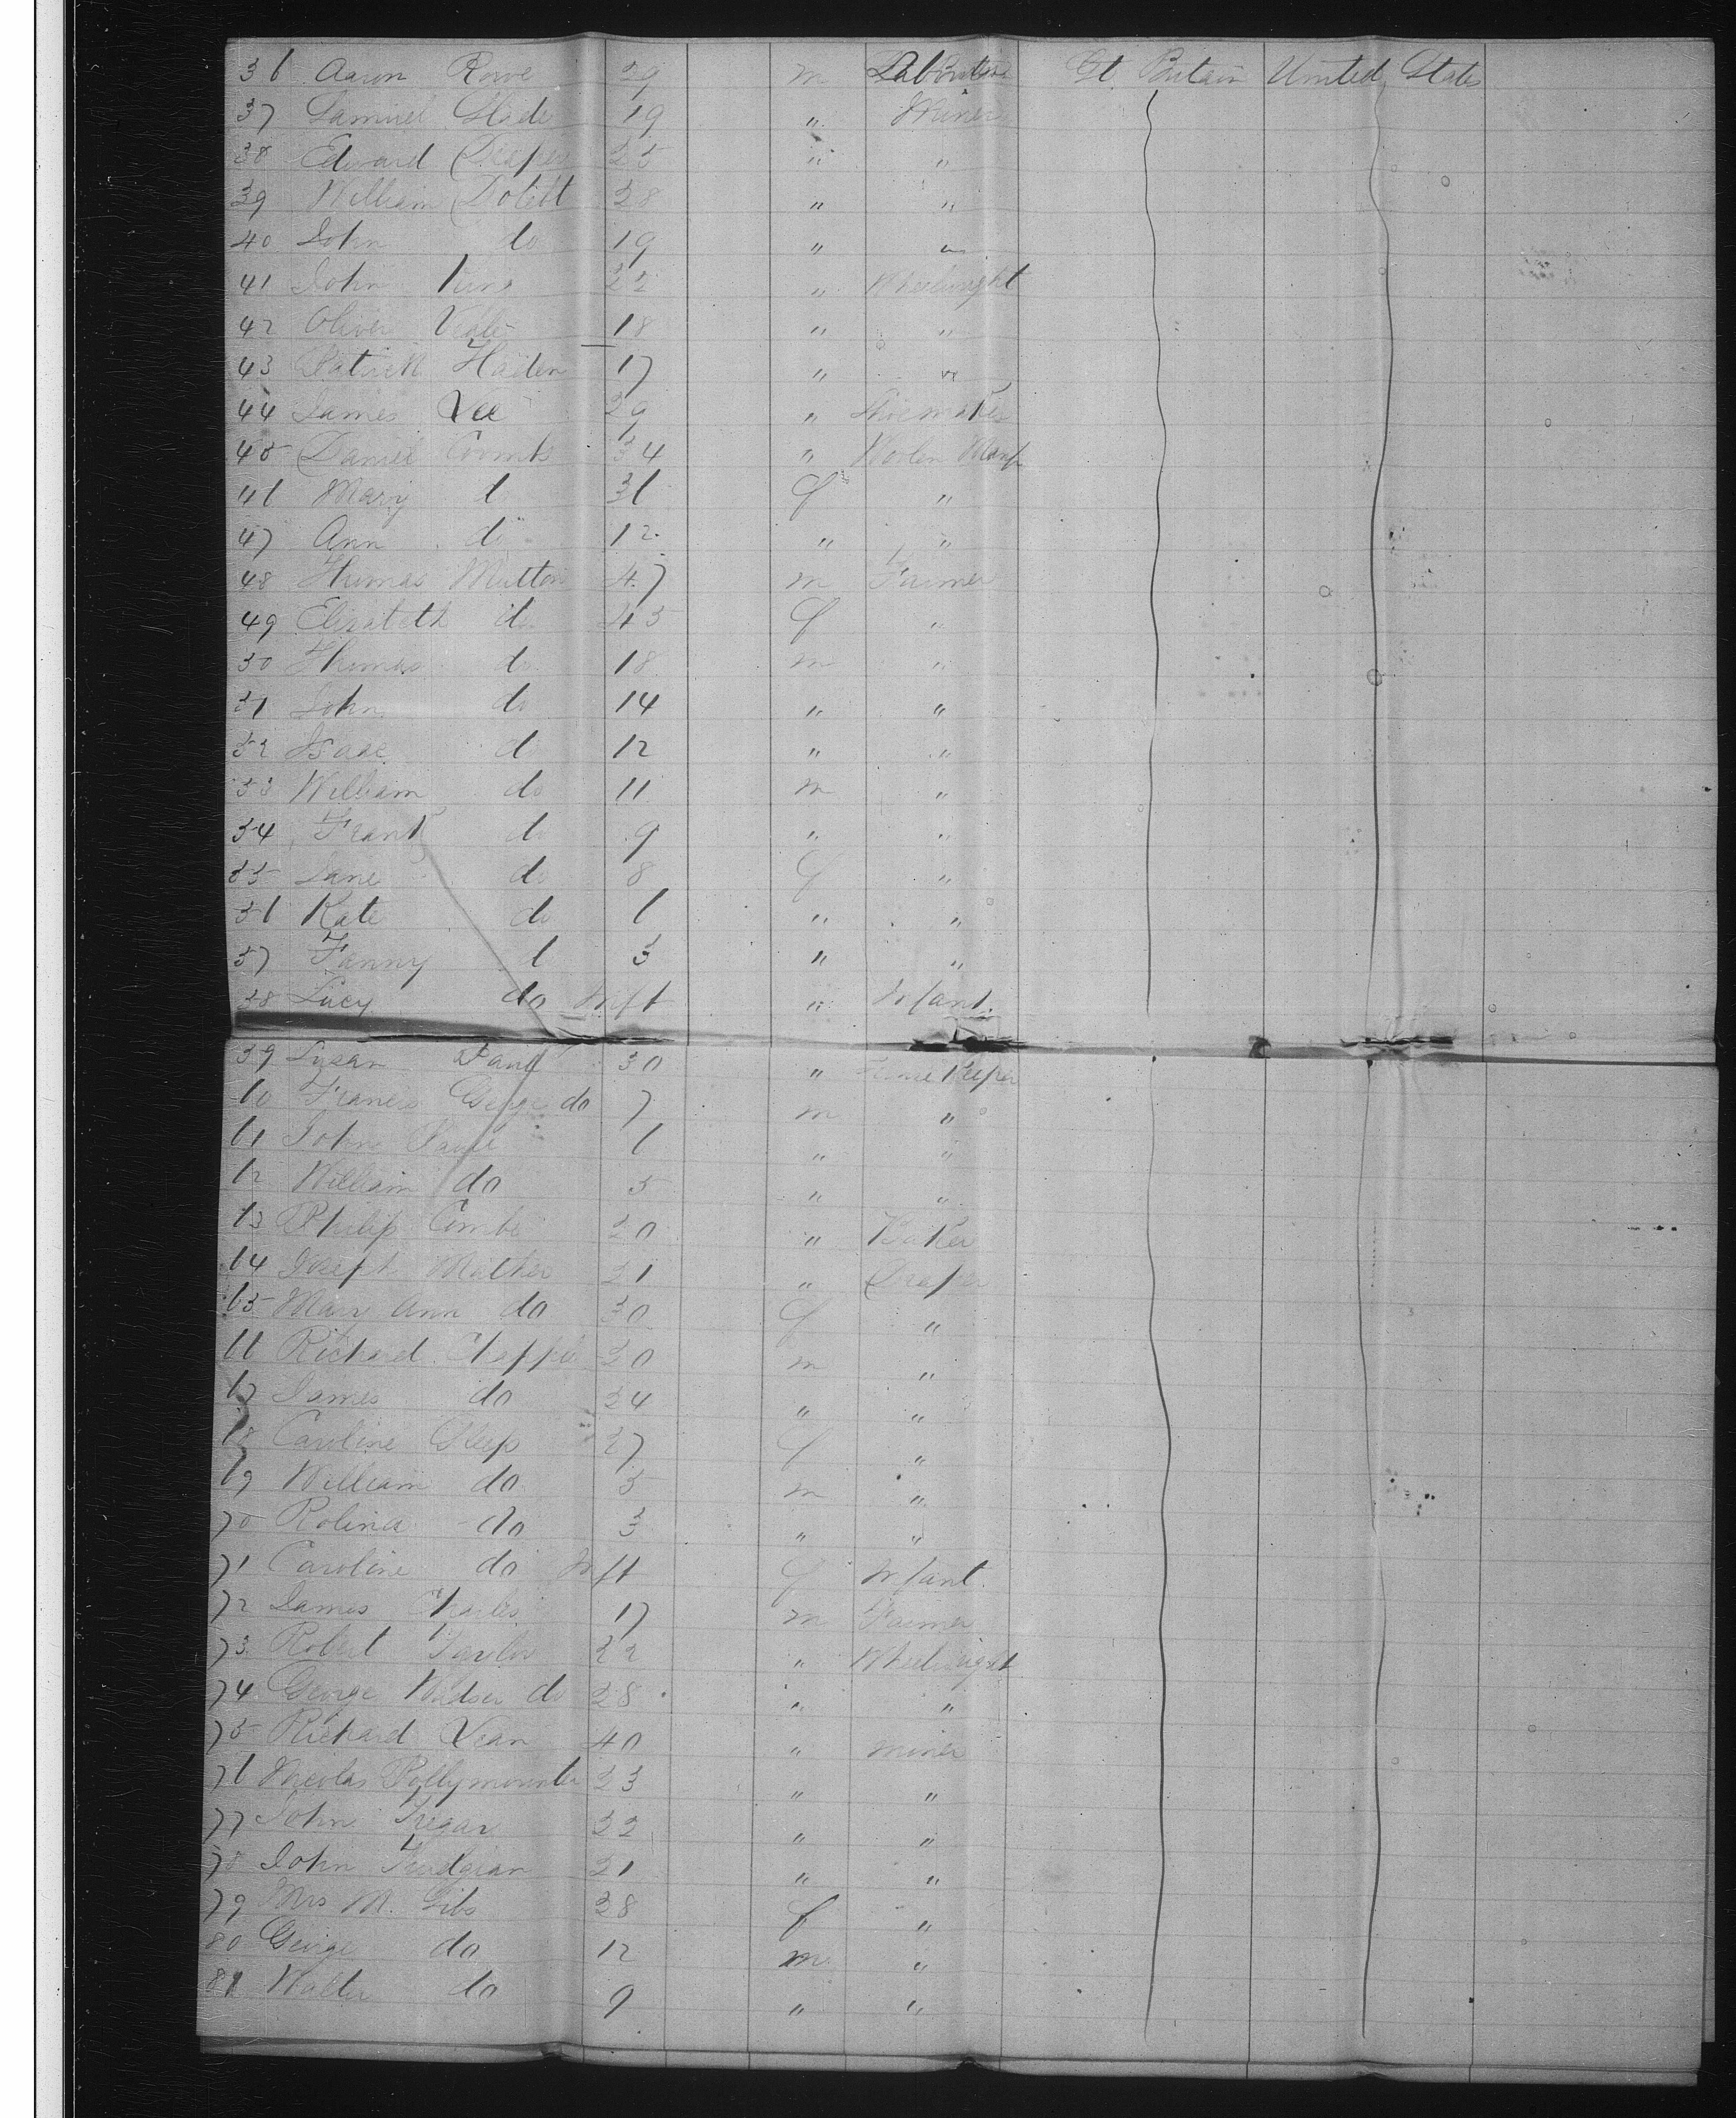 36 Aaron Rowe 29 m Labourer Gt Britain United States
37 Samuel Slade 19 " Miner
38 Edward Draper 25 " "
39 William 28 " "
40 John do 19 " "
41 John King 22 " Wheelwright
42 Oliver Veale 18 " "
43 Patrick Haiden 17 " "
44 James Lee 29 " Shoemaker
45 Daniel Coombs 34 " Woolen Manf
46 Mary do 36 f "
47 Ann do 12 " "
48 Thomas Mutton 47 m Farmer
49 Elizabeth do 45 f "
50 Thomas do 18 m "
51 John do 14 " "
52 Isaac do 12 " "
53 William do 11 m "
54 Frank do 9 " "
55 Jane do 8 f "
56 Kate do 6 " "
57 Fanny do 3 " "
58 Lucy do Inft " Infant
59 Susan 30 " House Keeper
60 Francis George do 7 m "
61 John 6 " "
62 William do 5 " "
63 Philip Combe 20 " Baker
64 Joseph Mather 21 " Draper
65 Mary Ann do 30 f "
66 Richard Chapple 20 m "
67 James do 24 " "
68 Caroline Sleep 27 f "
69 William do 5 m "
70 Rolina do 3 " "
71 Caroline do Inft f Infant
72 James Charles 17 m Farmer
73 Robert Taylor 22 " Wheelwright
74 George do 28 " "
75 Richard Vean 40 " miner
76 Nicolas Pollymounter 23 " "
77 John Tregar 22 " "
78 John Trudgian 21 " "
79 Mrs M. Gibs 38 f "
80 George do 12 m "
81 Walter do 9 " "